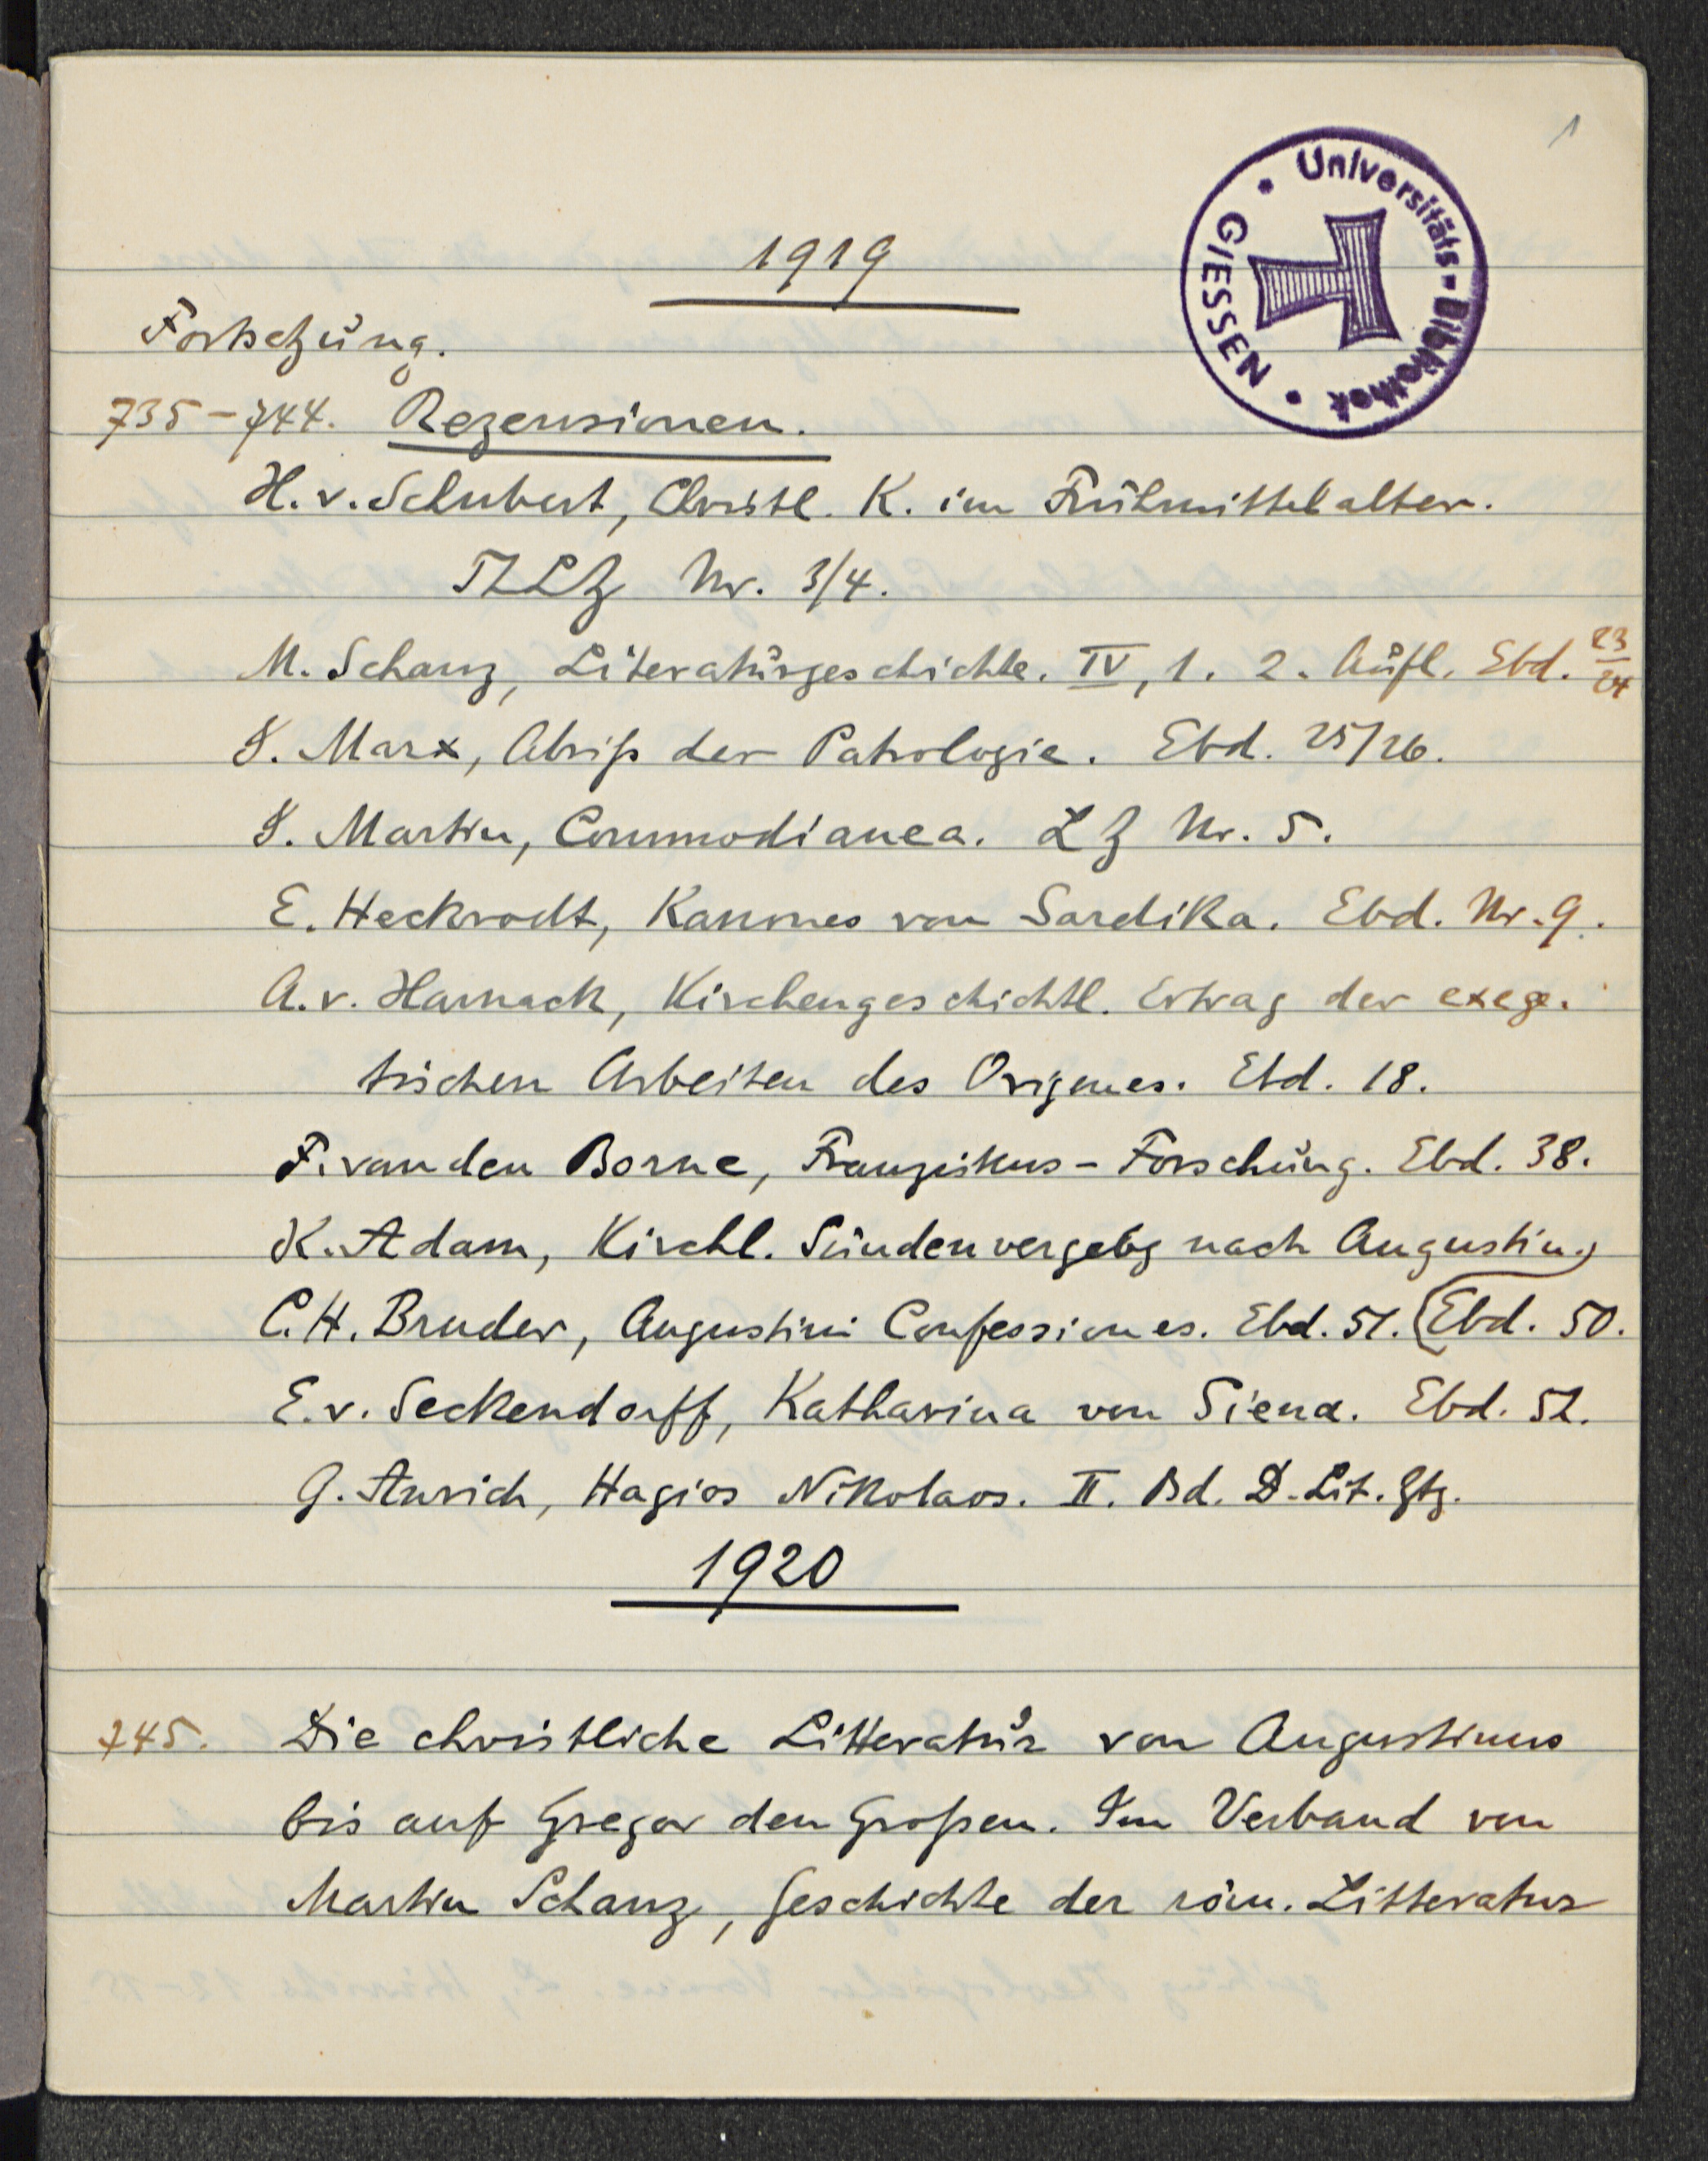 1
Universitäts-Bibliothek
GIESSEN
1919
Fortsetzung.
735-744. Rezensionen.
H. v. Schubert, Christl. K. im Frühmittelalter.
ThLZ Nr. 3/4.
M. Schanz, Literaturgeschichte. IV, 1. 2. Aufl. Ebd. 23/24
J. Marx, Abriß der Patrologie. Ebd. 25/26.
J. Martin, Commodianea. LZ Nr. 5.
E. Heckrodt, Kanones von Sardika. Ebd. Nr. 9.
A. v. Harnack, Kirchengeschichtl. Ertrag der exege-
tischen Arbeiten des Origenes. Ebd. 18.
F. van den Borne, Franziskus-Forschung. Ebd. 38.
K. Adam, Kirchl. Sündenvergebg nach Augustin.
C. H. Bruder, Augustini Confessiones. Ebd. 51. (Ebd. 50.
E. v. Seckendorff, Katharina von Siena. Ebd. 52.
G. Anrich, Hagios Nikolaos. II. Bd. D. Lit. Ztg.
1920
745. Die christliche Litteratur von Augustinus
bis auf Gregor den Großen. Im Verband von
Martin Schanz, Geschichte der röm. Litteratur